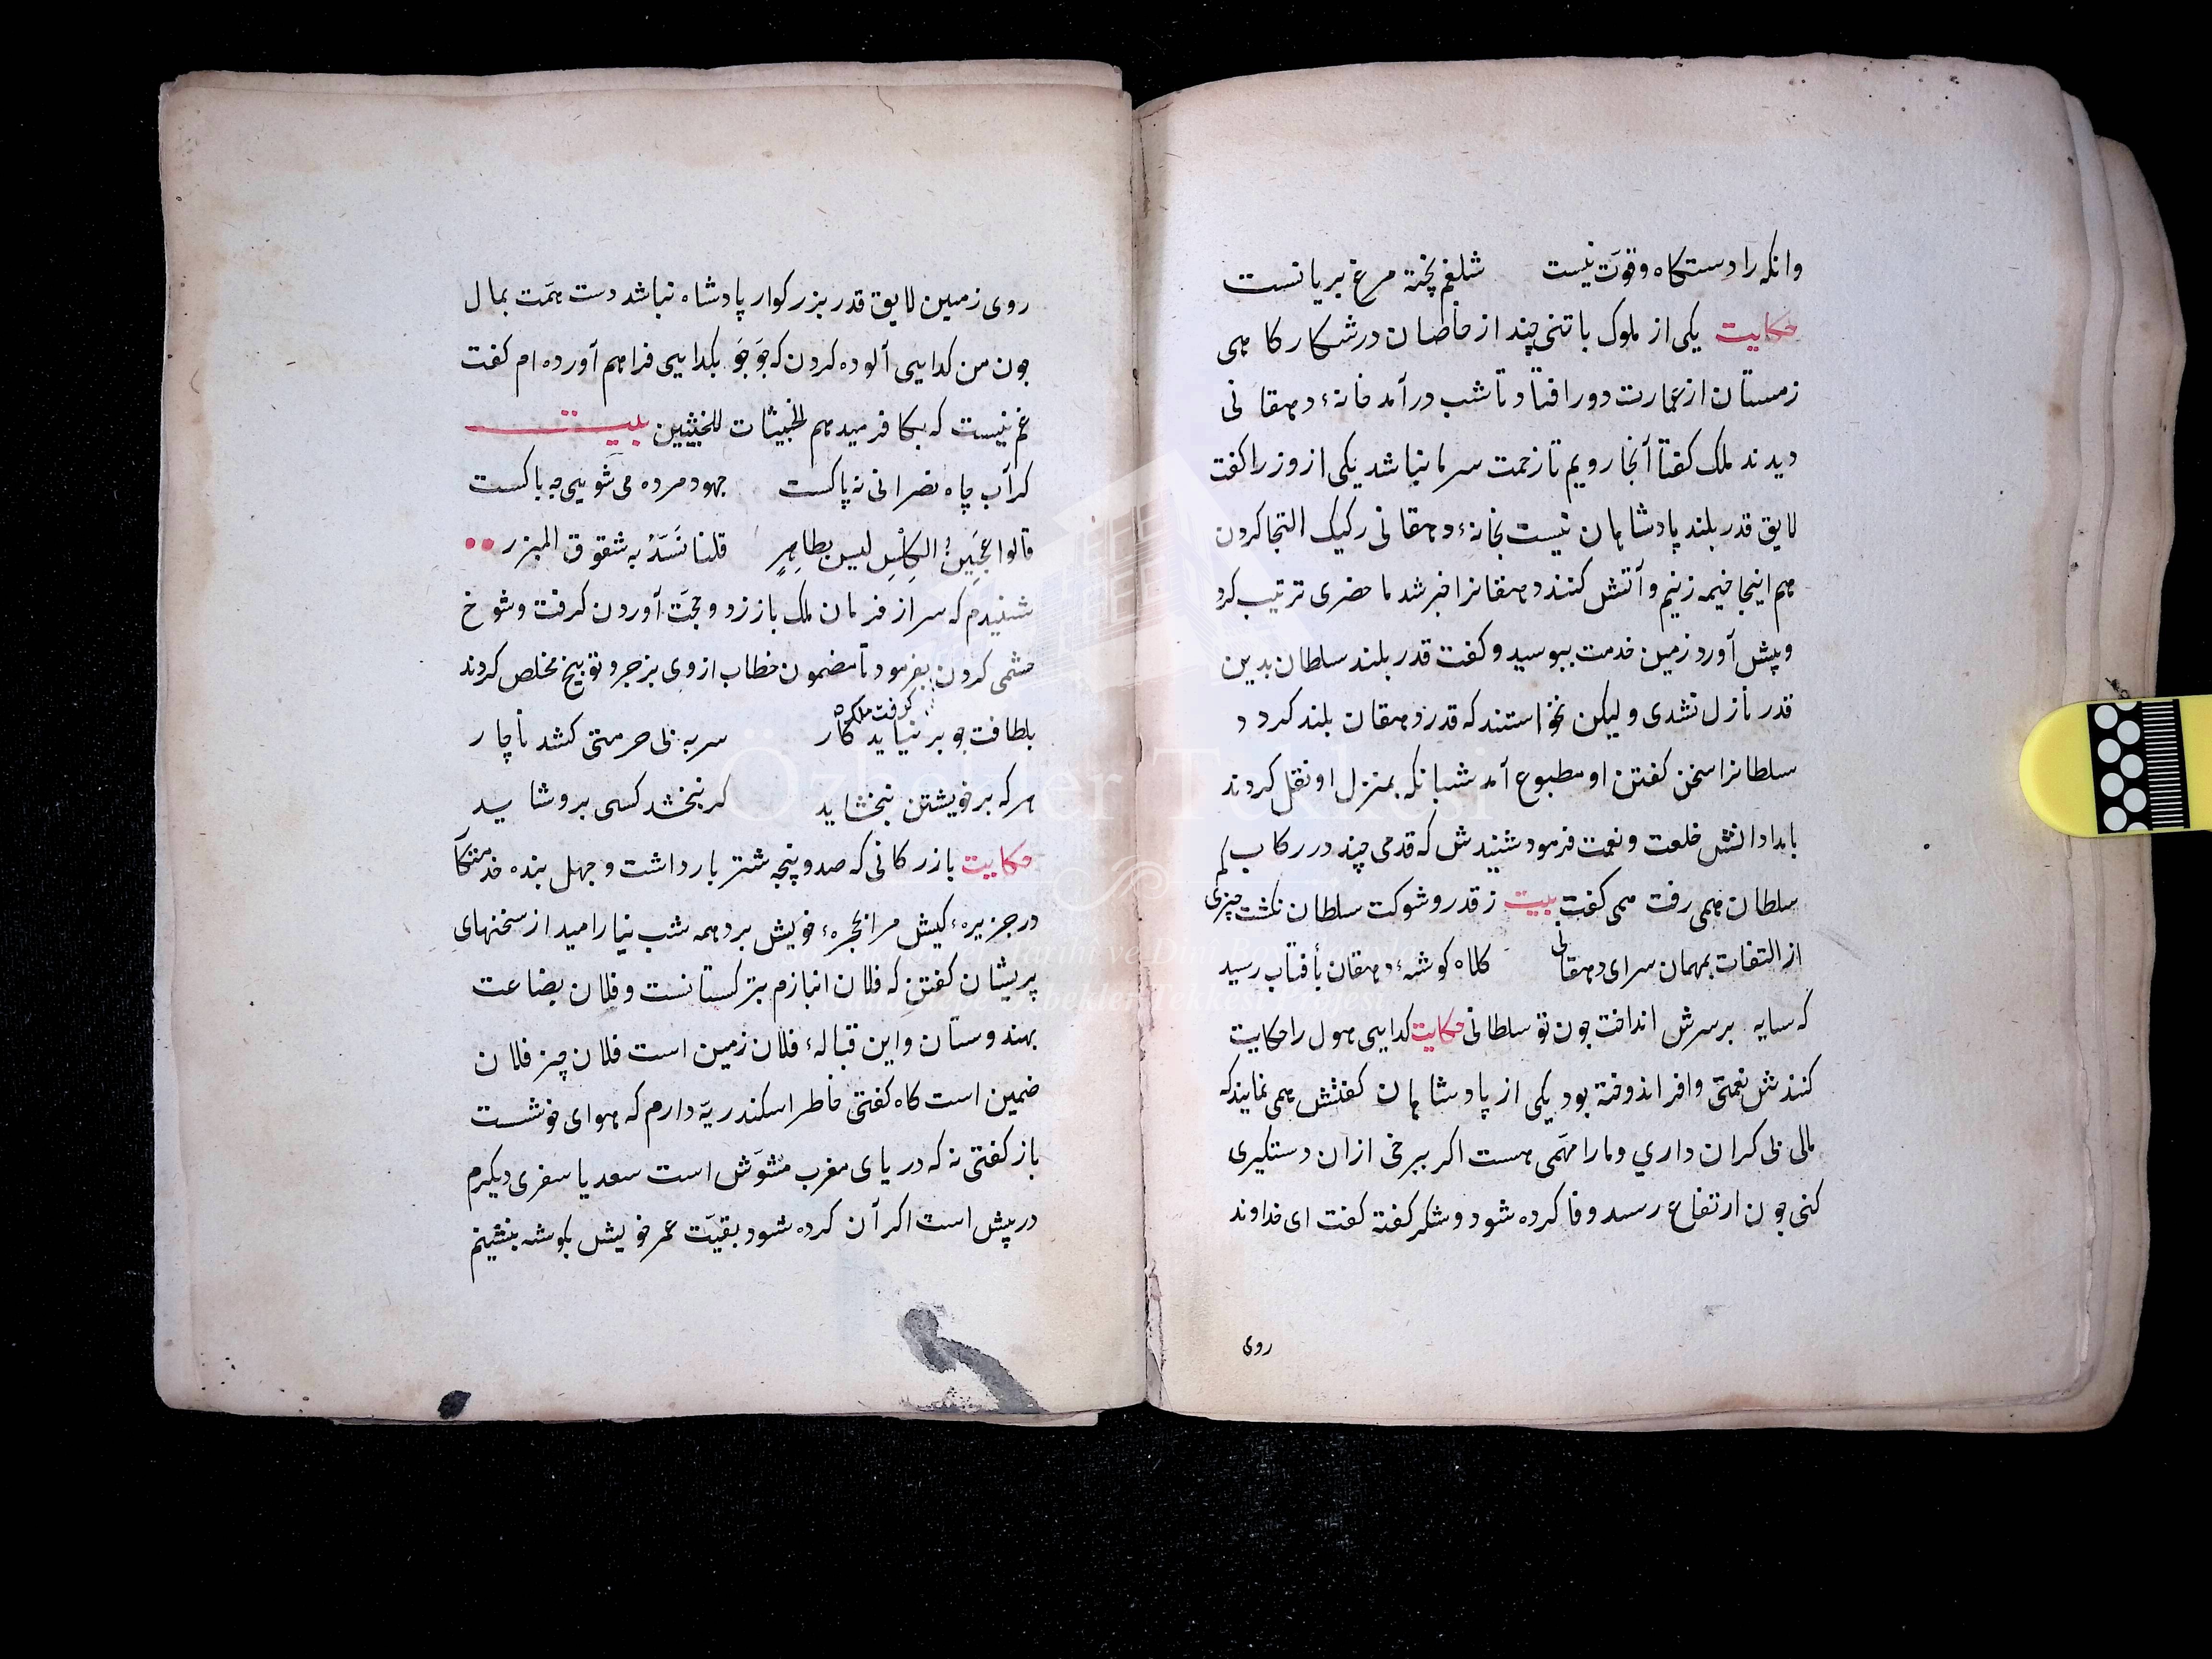 وانکه را دستکاه وقوّت نیست شلغم پخته مرغ بریانست
حکایت یکی از ملوک با تنی چند از خاصان در شکار کا مهی
زمستان از عمارت دور افتاد تا شب درآمد خانهٔ دهقانی
دیدند ملک کفتا آنجا رویم تا زحمت سرما نباشد یکی از وزرا کفت
لایق قدر بلند پادشاهان نیست بخانهٔ دهقانی رکیک التجا کردن
هم اینجا خیمه زنیم و آتش کنند دهقانرا خبر شد ما حضری ترتیب کرد
و پیش آورد زمین خدمت ببوسید و کفت قدر بلند سلطان بدین
قدر نازل نشدی و لیکن نخواستند که قدر دهقان بلند کردد
سلطانرا سخن کفتن او مطبوع آمد شبانکه بمنزل او نقل کردند
بامدادانش خلعت و نعمت فرمود شنیدش که قدمی چند در رکاب
سلطان همی رفت همی کفت بیت ز قدر و شوکت سلطان نکشت چیزی کم
از التفات بمهمان سرای دهقانی کلاه کوشهٔ دهقان بأفتاب رسید
که سایه برسرش انداخت جون تو سلطانی حکایت کدایی هول را حکایت
کنندش نعمتی وافر اندوخته بود یکی از پادشاهان کفتش همی نمایند که
مالی بی کران داری و ما را مهّمی هست اکر ببرخی ازان دستکیری
کنی جون ارتفاع رسد وفا کرده شود و شکر کفته کفت ای خداوند
روی
روی زمین لایق قدر بزرکوار پادشاه نباشد دست همّت بمال
جون من کدایی آلوده کردن که جَو جَو بکدایی فراهم آورده ام کفت
غم نیست که بکافر میدهم الخبیثات للخبیثین بیت
کر آب چاه نصرانی نه پاکست جهود مرده می شویی چه باکست
قالوا عجین الکلس لیس بطاهر قلنا نسدّ به شقوق المبزر
شنیدم که سر از فرمان ملک باز زد و حجّت آوردن کرفت و شوخ
چشمی کردن بفرمود تا مضمون خطاب از وی بزجر و توبیخ مخلص کردند
بلطافت جو بر نیاید کار سر به بی حرمتی کشد ناچار
هرکه بر خویشتن نبخشاید کر نبخشد کسی برو شاید
حکایت بازرکانی که صد و پنجه شتر بار داشت و جهل بنده خدمتکار
در جزیرهٔ کیش مرا بحجرهٔ خویش برد همه شب نیارامید از سخنهای
پریشان کفتن که فلان انبازم بترکستانست و فلان بضاعت
بهندوستان و این قبالهٔ فلان زمین است فلان چیز فلان
ضمین است کاه کفتی خاطر اسکندریّه دارم که هوای خوشست
باز کفتی نه که دریای مغرب مشوّش است سعدیا سفری دیکرم
در پیش است اکر آن کرده شود بقیّت عمر خویش بکوشه بنشینم